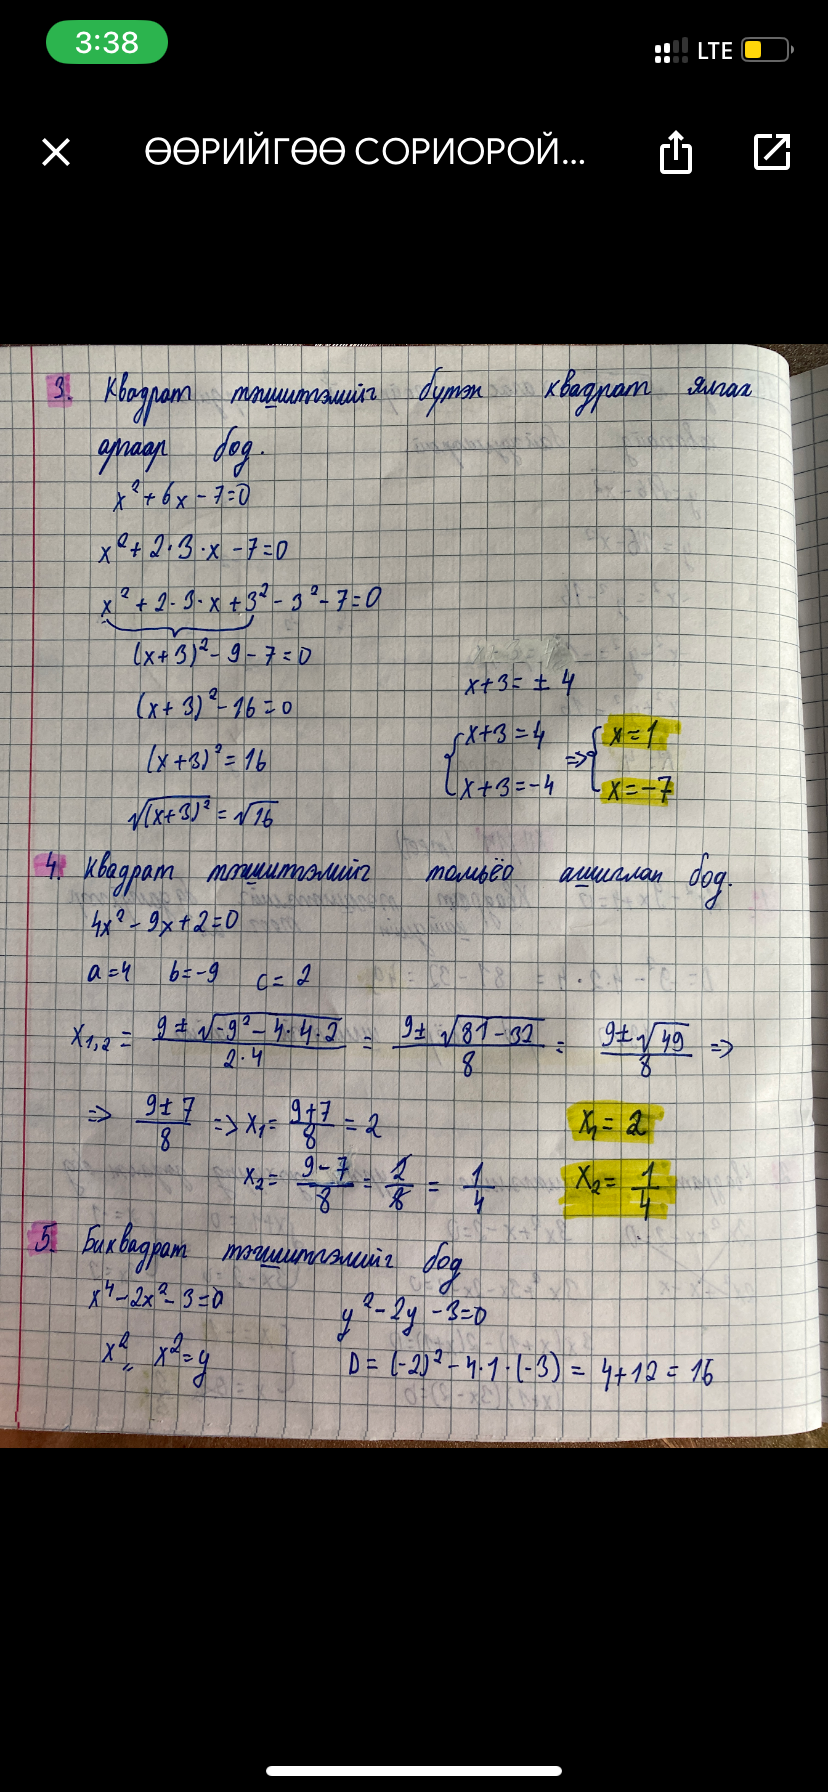 3:38
LTE
ӨӨРИЙГӨӨ СОРИОРОЙ...
3. Квадрат тэгшитгэлийг бүтэн квадрат ялгах
аргаар бод.
x² + 6x - 7 = 0
x² + 2·3·x - 7 = 0
x² + 2·3·x + 3² - 3² - 7 = 0
(x+3)² - 9 - 7 = 0
(x+3)² - 16 = 0
(x+3)² = 16
√(x+3)² = √16
x+3 = ± 4
{ x+3 = 4 => { x = 1
x+3 = -4 x = -7
4. Квадрат тэгшитгэлийг томьёо ашиглан бод.
4x² - 9x + 2 = 0
a = 4 b = -9 c = 2
x1,2 = (9 ± √-9² - 4·4·2)/(2·4) = (9 ± √81 - 32)/8 = (9 ± √49)/8 =>
=> (9 ± 7)/8 => x1 = (9+7)/8 = 2 x1 = 2
x2 = (9-7)/8 = 2/8 = 1/4 x2 = 1/4
5. Биквадрат тэгшитгэлийг бод
x⁴ - 2x² - 3 = 0 y² - 2y - 3 = 0
x² x² = y D = (-2)² - 4·1·(-3) = 4 + 12 = 16